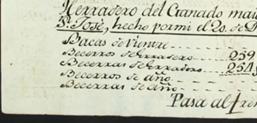 Herradero del Ganado ma
Sn. José, hecho por mi el 20. de D
Bacas de Vientre
Becerros de Herradero 239
Becerras de Herradero 254
Becerros de año
Becerras de Año
Pasa al fren